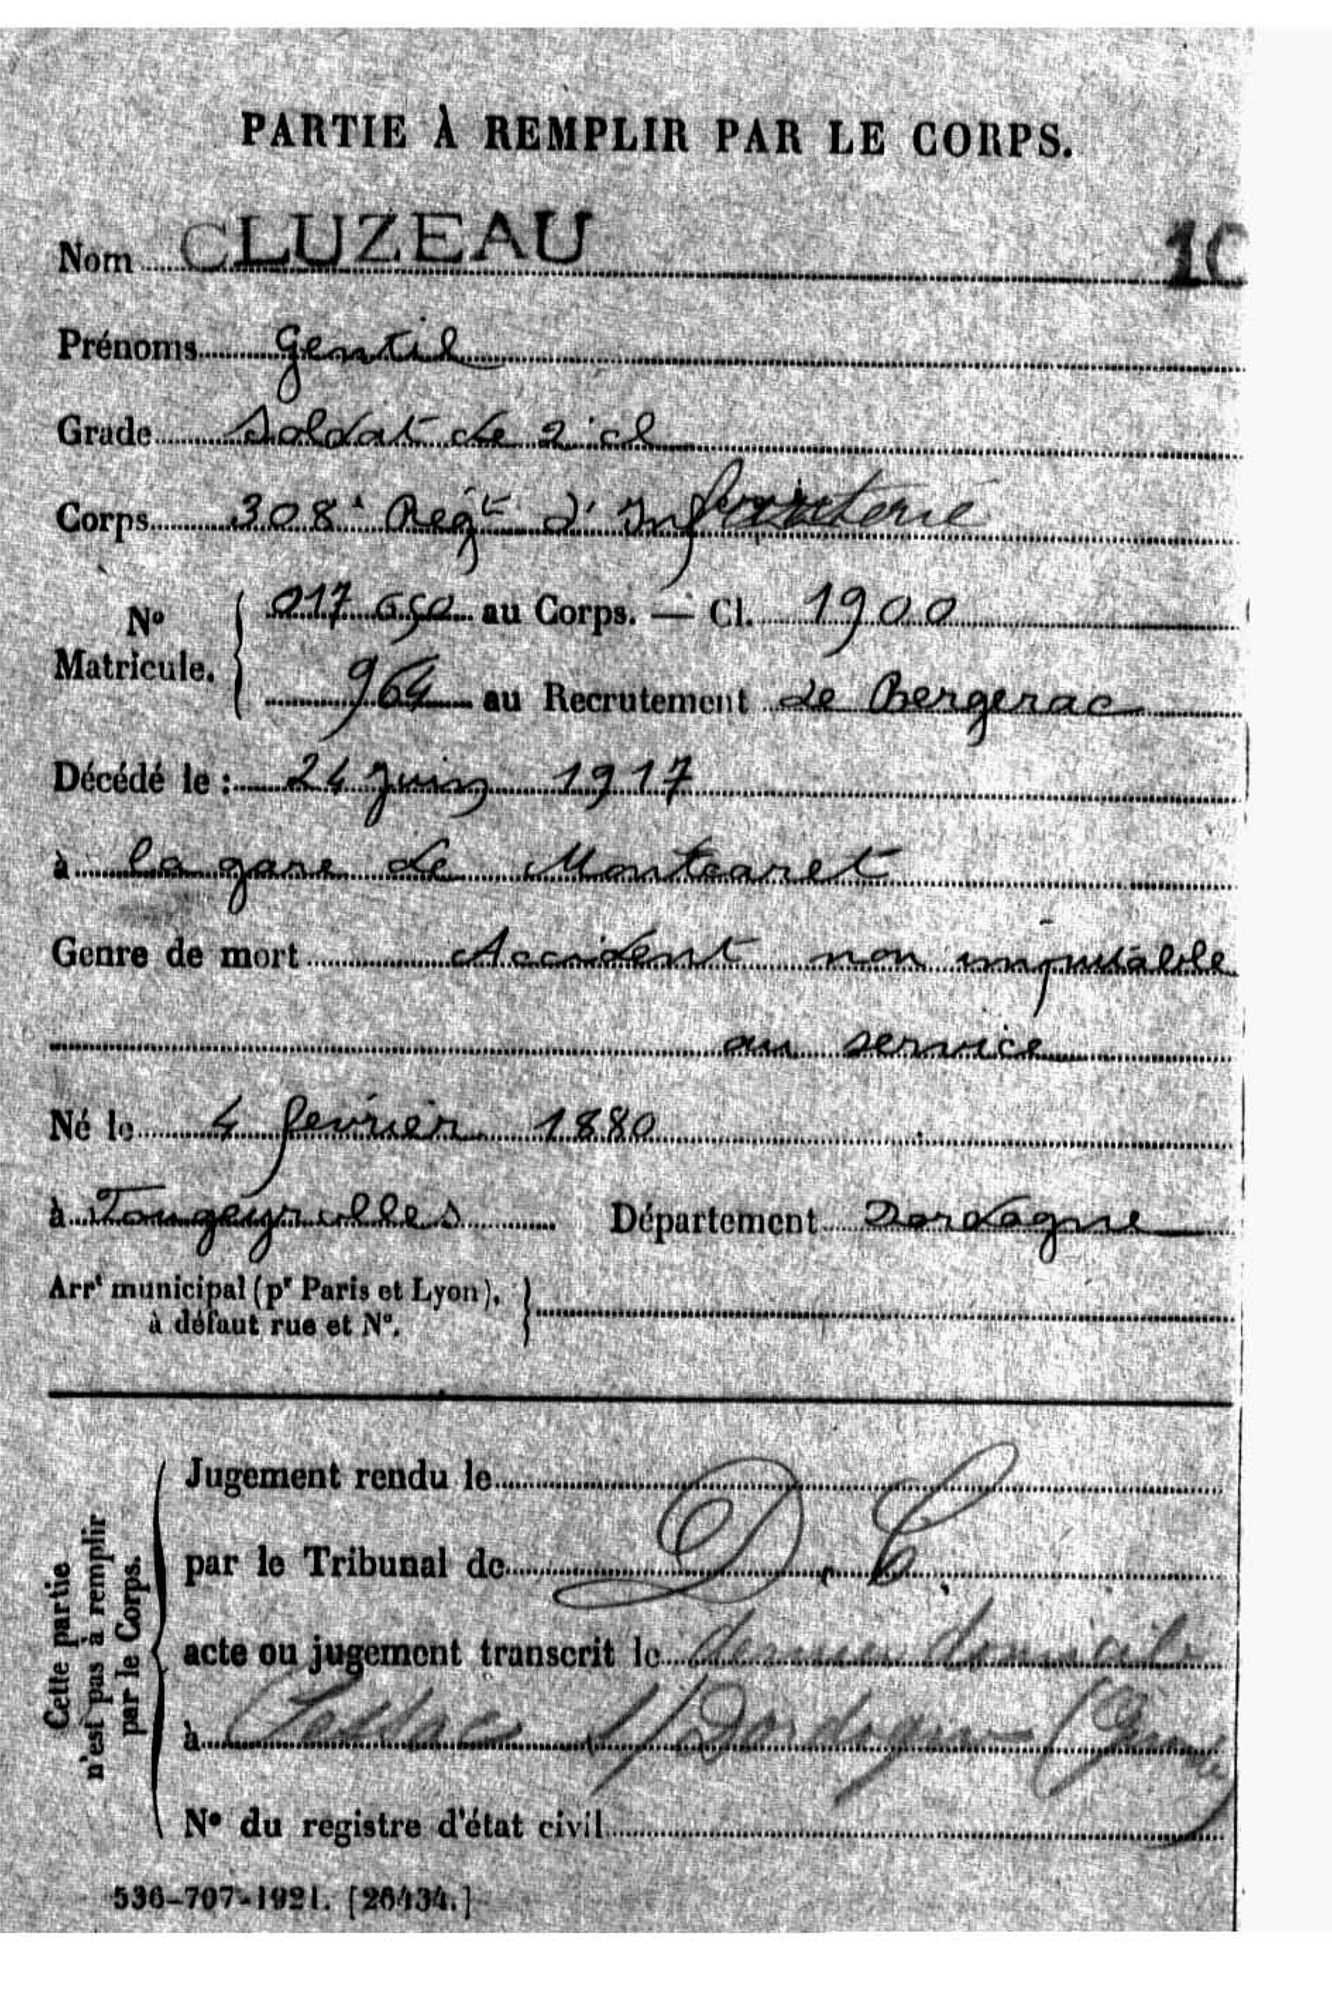 PARTIE À REMPLIR PAR LE CORPS.
Nom CLUZEAU 10
Prénoms Gentil
Grade Soldat de 2e cl
Corps 308e Régt d'Infanterie
No Matricule. { 017 650 au Corps. — Cl. 1900
964 au Recrutement de Bergerac
Décédé le : 24 juin 1917
à la gare de Montcaret
Genre de mort Accident non imputable
au service
Né le 4 fevrier 1880
à Fougeyrolles Département Dordogne
Arrt municipal (pr Paris et Lyon),
à défaut rue et No. }
Cette partie
n'est pas à remplir
par le Corps.
Jugement rendu le
par le Tribunal de D. C.
acte ou jugement transcrit le dernier domicile
à Pessac s/Dordogne (Gironde)
No du registre d'état civil
536-707-1921. [26434.]